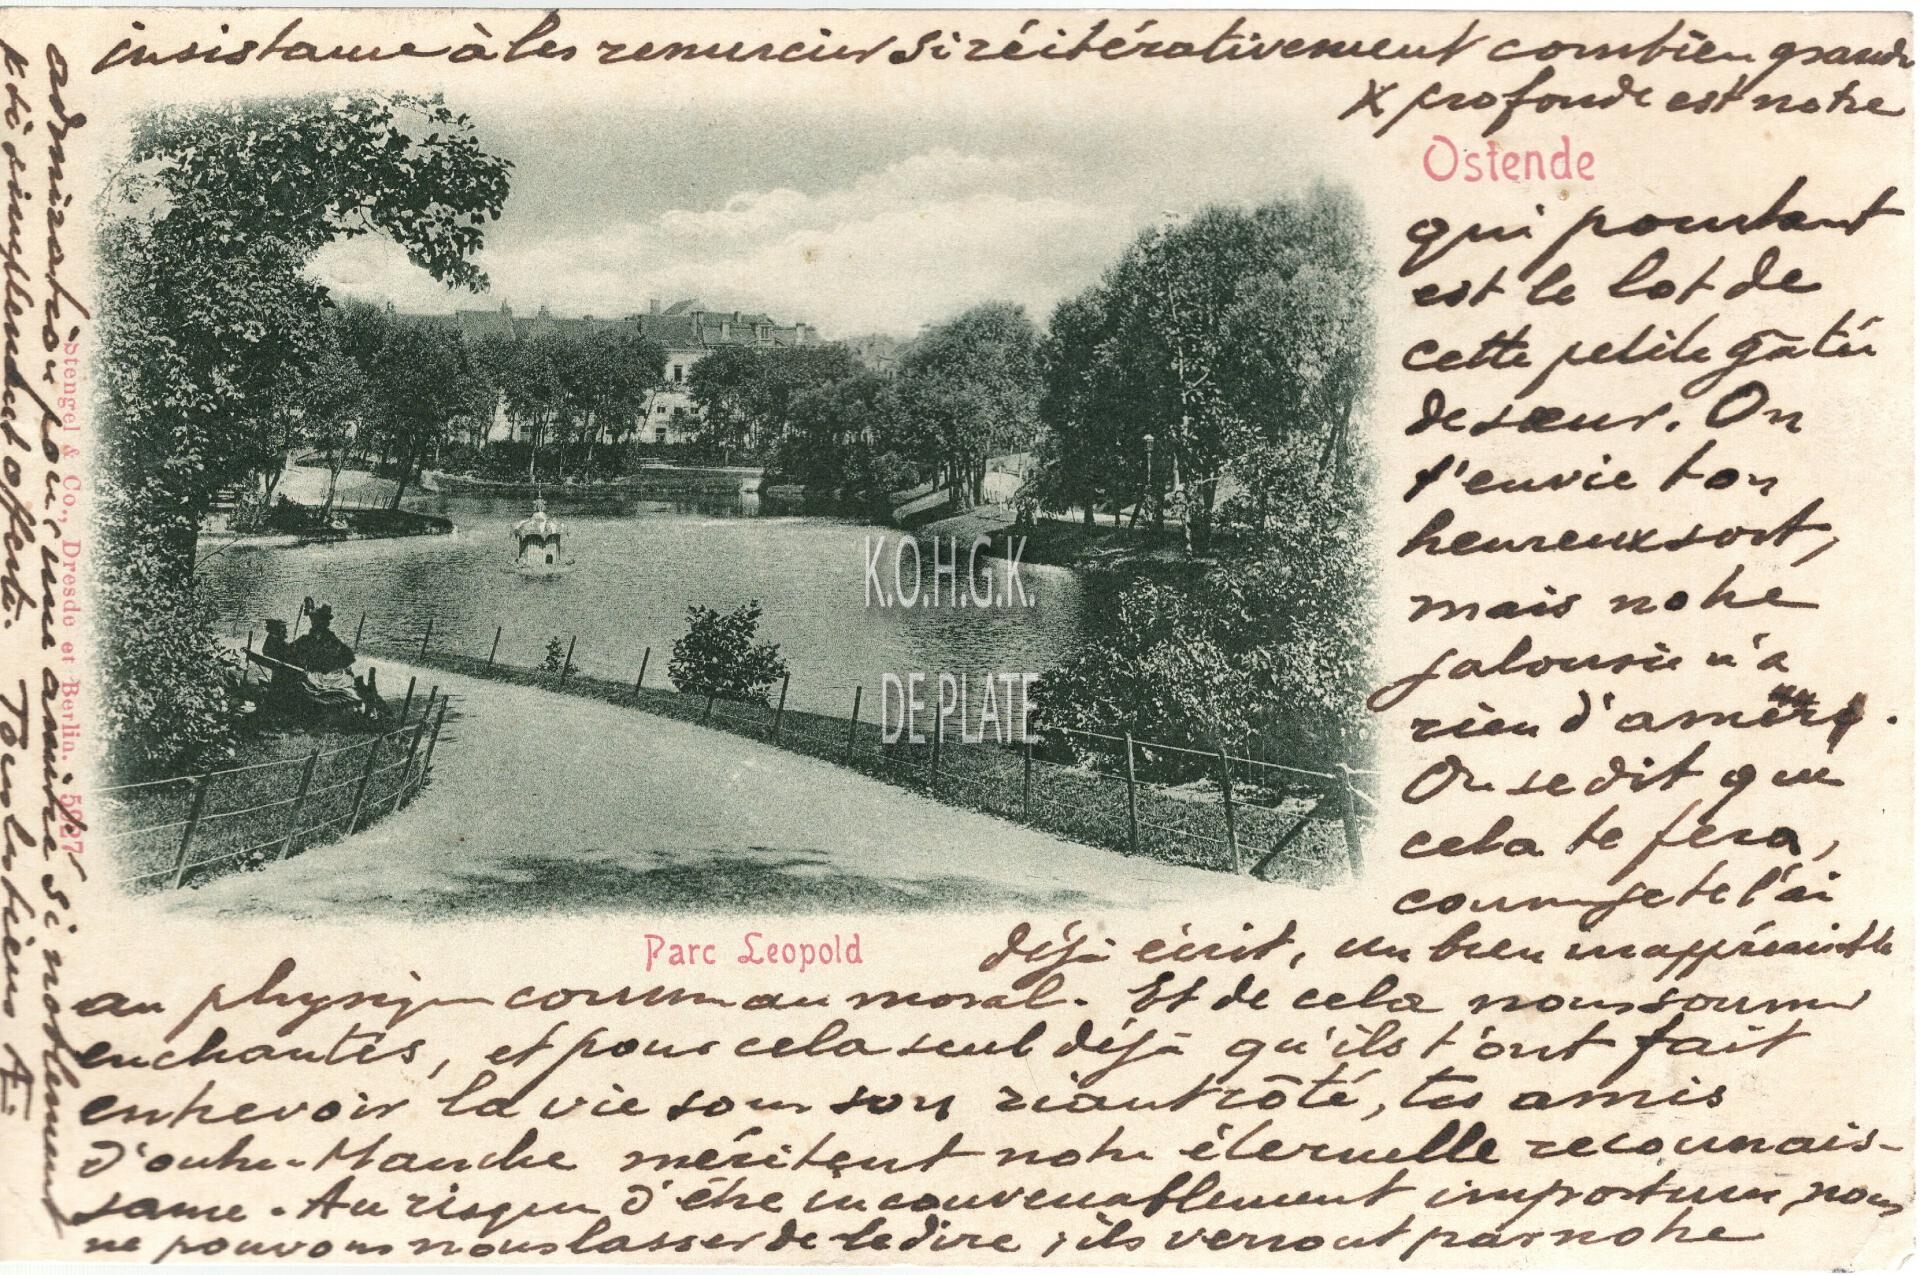 Ostende
qui pourtant
est le lot de
cette petite gâtée
de sœur. On
t'envie ton
heureux sort,
mais notre
jalousie n'a
rien d'amère.
On se dit que
cela te fera,
comme je te l'ai
déjà écrit, un bien inappréciable
au physique comme au moral. Et de cela nous sommes
enchantés, et pour cela seul déjà qu'ils t'ont fait
entrevoir la vie sous son riant côté, tes amis
d'outre-Manche méritent notre éternelle reconnais-
sance. Au risque d'être inconvenablement importuns, nous
ne pouvons nous lasser de le dire, ils verront par notre
insistance à les remercier si réitérativement combien grande
& profonde est notre
admiration pour une amitié si noblement
& si simplement offerte. Tout un tiens A.
Parc Leopold
Stengel & Co., Dresde et Berlin. 5927
K.O.H.G.K.
DE PLATE